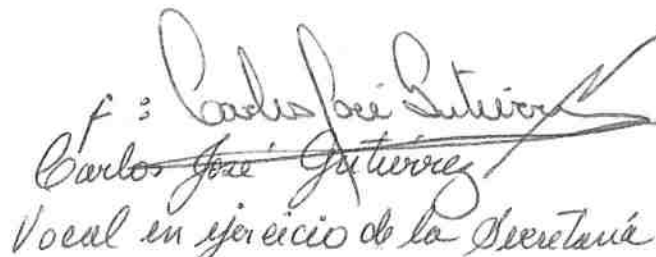 f: Carlos José Gutiérrez
Carlos José Gutiérrez
Vocal en ejercicio de la Secretaría